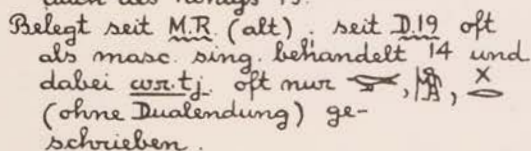 auch des Königs 13.
Belegt seit M.R. (alt). seit D.19 oft
als masc. sing. behandelt 14 und
dabei wr.tj. oft nur , ,
(ohne Dualendung) ge-
schrieben.